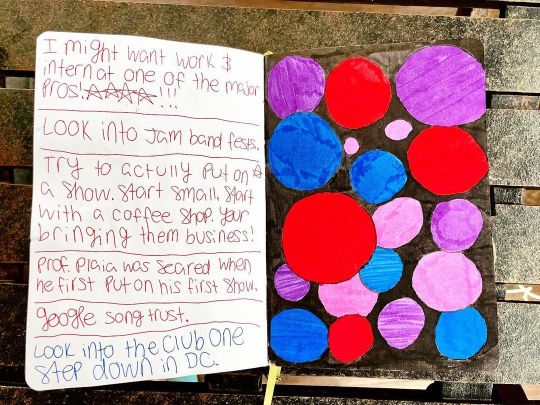 I might want work $
intern at one of the major
Pros! AAAA!!!
LOOK into Jam band fests.
Try to actully Put on
a show. Start small. Start
with a coffee shop. Your
bringing them business!
Prof. Plaia was scared when
he first Put on his first show.
google songtrust.
LOOK into the Club One
Step down in DC.